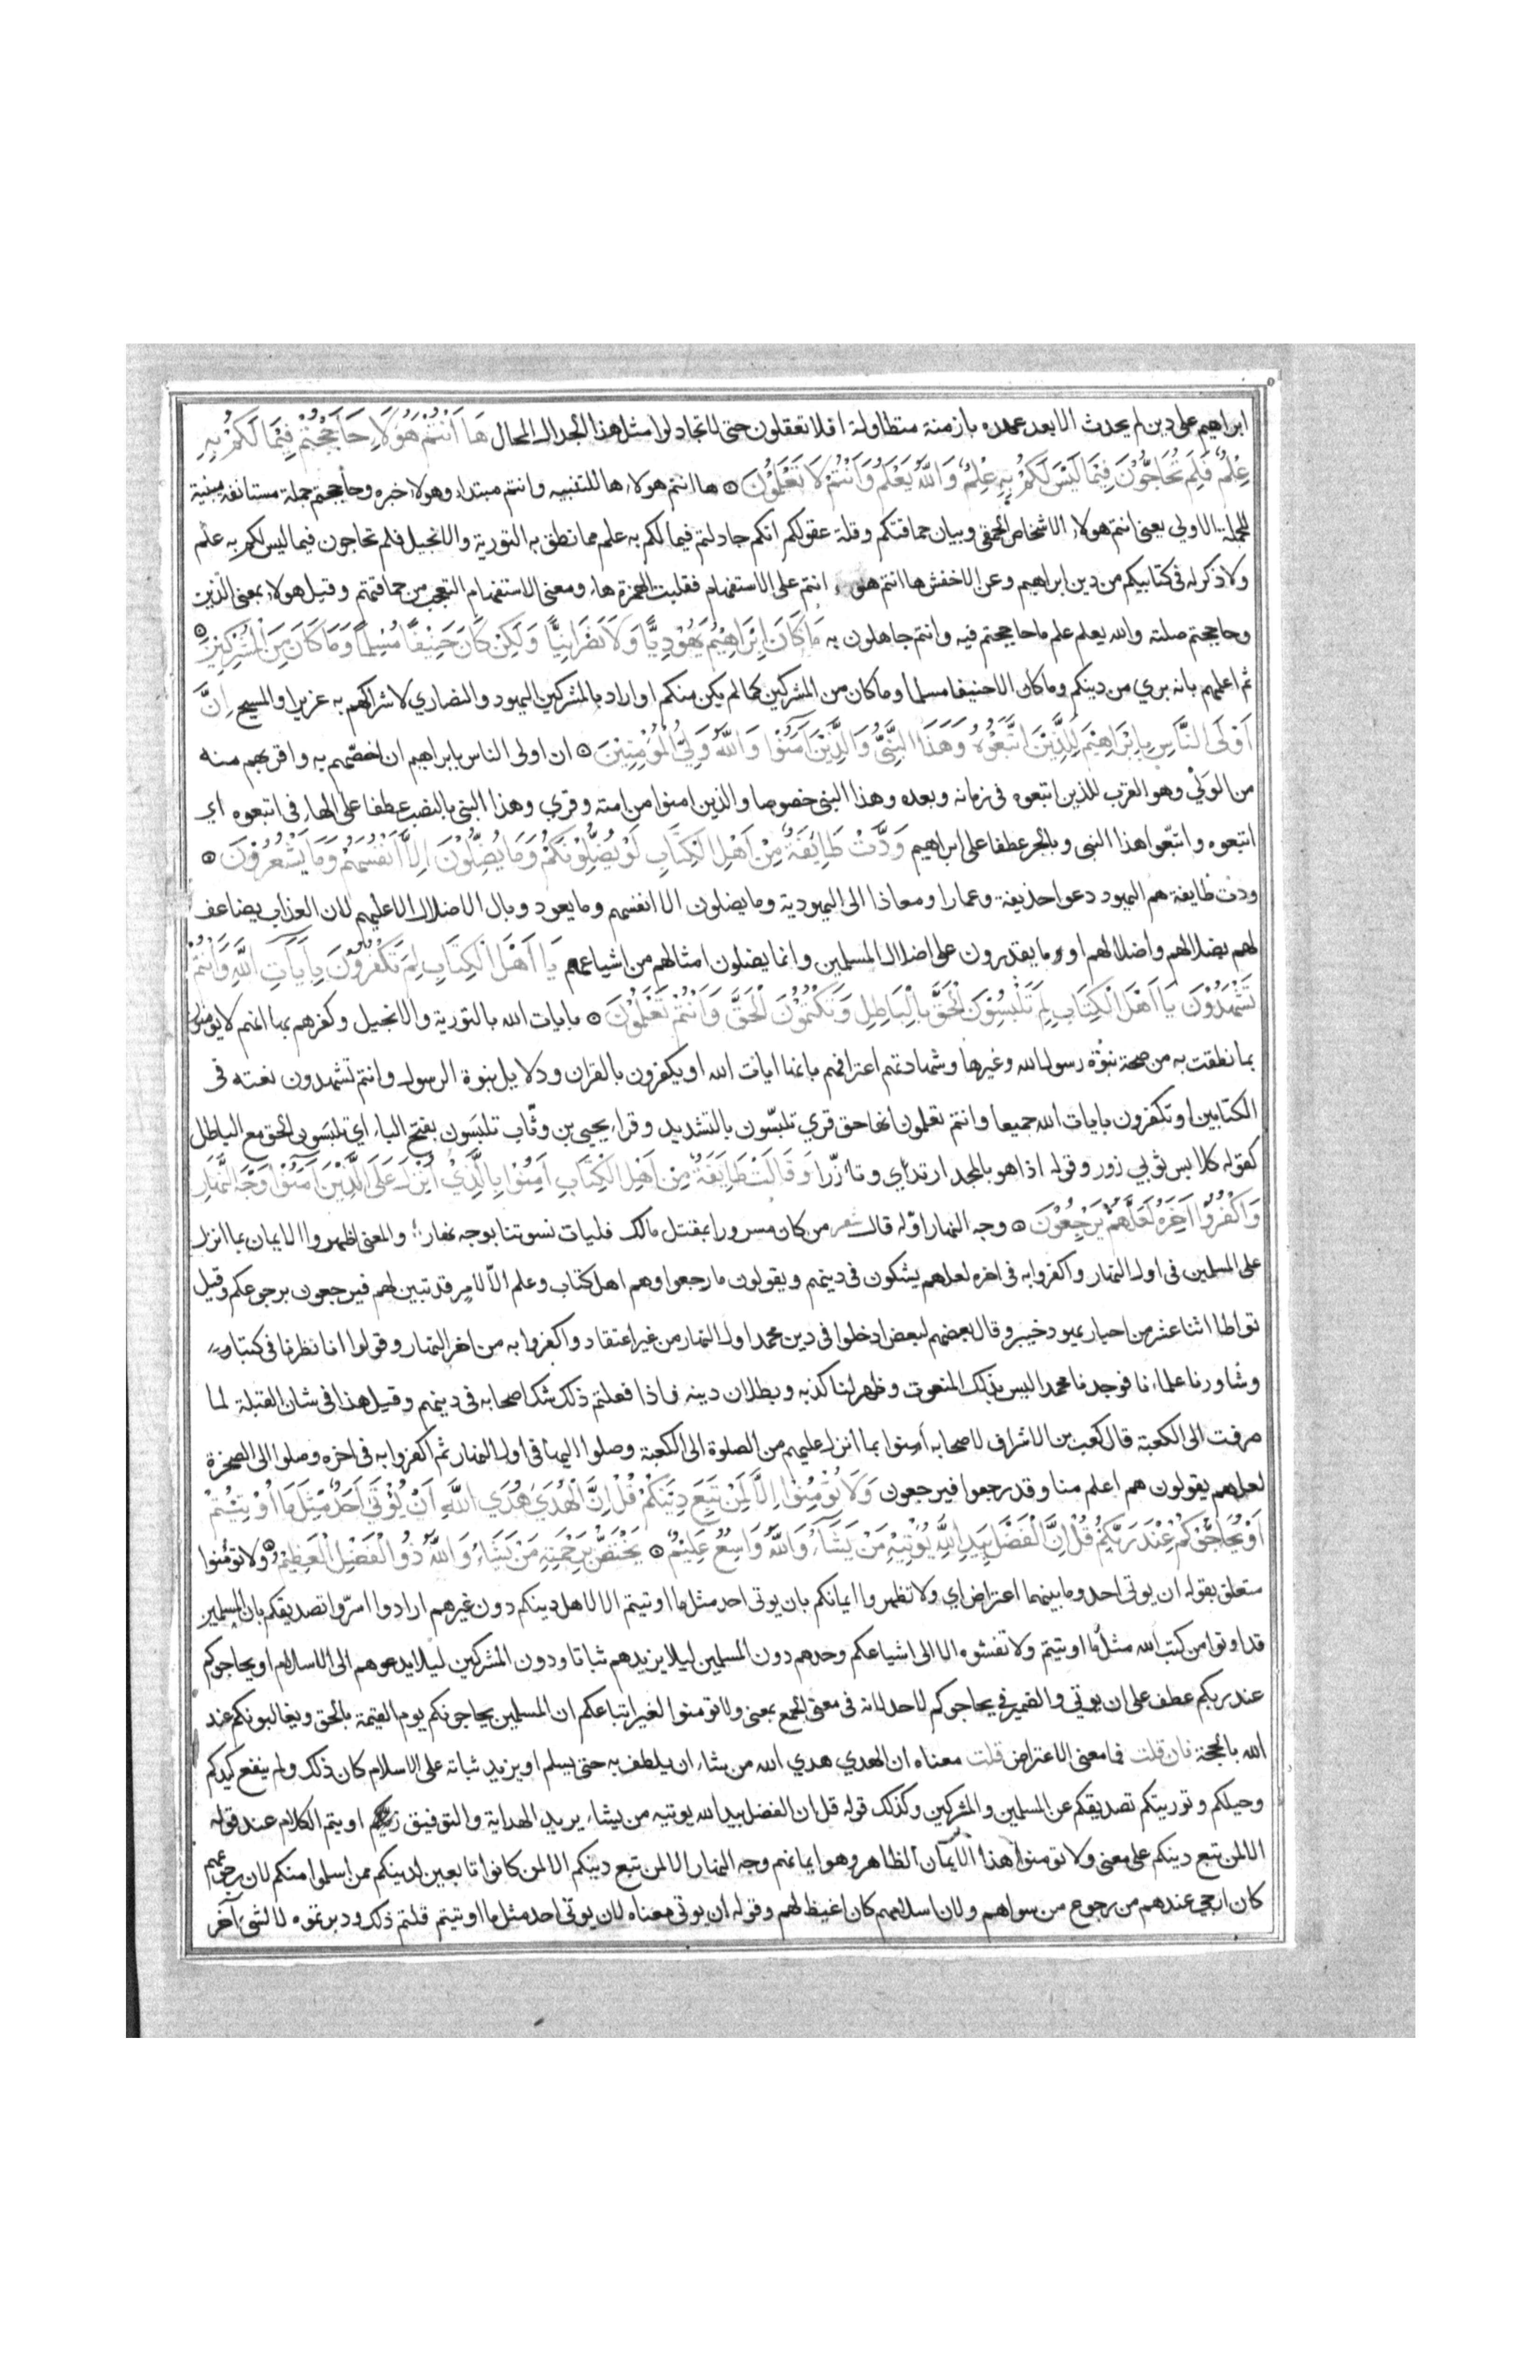 ابراهيم على دين لم يحدث الا بعد عهده بازمنة متطاولة افلا تعقلون حتى لا تجادلوا مثل هذا الجدال المحال هَا اَنْتُمْ هٰؤُلَاءِ حَاجَجْتُمْ فِيْمَا لَكُمْ بِهِ
عِلْمٌ فَلِمَ تُحَاجُّونَ فِيْمَا لَيْسَ لَكُمْ بِهِ عِلْمٌ وَاللّٰهُ يَعْلَمُ وَاَنْتُمْ لَا تَعْلَمُوْنَ ۞ ها انتم هولاء ها للتنبيه وانتم مبتدا وهولا خبره وحاججتم جملة مستانفة مبينة
للجملة الاولي يعني انتم هولاء الاشخاص الحمقي وبيان حماقتكم وقلة عقولكم انكم جادلتم فيما لكم به علم مما نطق به التورية والانجيل فلم تحاجون فيما ليس لكم به علم
ولا ذكر له في كتابيكم من دين ابراهيم وعن الاخفش ها انتم هو اانتم على الاستفهام فقلبت الهمزة هاء ومعنى الاستفهام التعجب من حماقتهم وقيل هولاء بمعنى الذين
وحاججتم صلته والله يعلم علم ما حاججتم فيه وانتم جاهلون به مَا كَانَ اِبْرَاهِيْمُ يَهُوْدِيًّا وَلَا نَصْرَانِيًّا وَلٰكِنْ كَانَ حَنِيْفًا مُسْلِمًا وَمَا كَانَ مِنَ الْمُشْرِكِيْنَ ۞
ثم اعلمهم بانه بري من دينكم وما كان الا حنيفا مسلما وما كان من المشركين كما لم يكن منكم او اراد بالمشركين اليهود والنصاري لاشراكهم به عزيرا والمسيح اِنَّ
اَوْلَى النَّاسِ بِاِبْرَاهِيْمَ لَلَّذِيْنَ اتَّبَعُوْهُ وَهٰذَا النَّبِيُّ وَالَّذِيْنَ اٰمَنُوْا وَاللّٰهُ وَلِيُّ الْمُؤْمِنِيْنَ ۞ ان اولى الناس بابراهيم ان اخصهم به واقربهم منه
من الوَلْي وهو القرب للذين اتبعوه في زمانه وبعده وهذا النبي خصوصا والذين امنوا من امته وقري وهذا النبي بالنصب عطفا على الهاء في اتبعوه اي
اتبعوه واتبعوا هذا النبي وبالجر عطفا على ابراهيم وَدَّتْ طَائِفَةٌ مِنْ اَهْلِ الْكِتَابِ لَوْ يُضِلُّوْنَكُمْ وَمَا يُضِلُّوْنَ اِلَّا اَنْفُسَهُمْ وَمَا يَشْعُرُوْنَ ۞
ودت طايفة هم اليهود دعوا حذيفة وعمارا ومعاذا الى اليهودية وما يضلون الا انفسهم وما يعود وبال الاضلال الا عليهم لان العذاب يضاعف
لهم بضلالهم واضلالهم او وما يقدرون على اضلال المسلمين وانما يضلون امثالهم من اشياعهم يَا اَهْلَ الْكِتَابِ لِمَ تَكْفُرُوْنَ بِاٰيَاتِ اللّٰهِ وَاَنْتُمْ
تَشْهَدُوْنَ يَا اَهْلَ الْكِتَابِ لِمَ تَلْبِسُوْنَ الْحَقَّ بِالْبَاطِلِ وَتَكْتُمُوْنَ الْحَقَّ وَاَنْتُمْ تَعْلَمُوْنَ ۞ بايات الله بالتورية والانجيل وكفرهم بها انهم لا يومنون
بما نطقت به من صحة نبوة رسول الله وغيرها وشهادتهم اعترافهم بانها ايات الله او يكفرون بالقران ودلايل نبوة الرسول وانتم تشهدون نعته في
الكتابين او تكفرون بايات الله جميعا وانتم تعلمون انها حق قري تلبّسون بالتشديد وقراء يحيي بن وثّاب تلبَسون بفتح الباء اي تلبَسون الحق مع الباطل
كقوله كلابس ثوبي زور وقوله اذا هو بالمجد ارتدي وتازّرا وَقَالَتْ طَائِفَةٌ مِنْ اَهْلِ الْكِتَابِ اٰمِنُوْا بِالَّذِيْ اُنْزِلَ عَلَى الَّذِيْنَ اٰمَنُوْا وَجْهَ النَّهَارِ
وَاكْفُرُوْا اٰخِرَهُ لَعَلَّهُمْ يَرْجِعُوْنَ ۞ وجه النهار اوّله قال شعر من كان مسرورا بمقتل مالك فليات نسوتنا بوجه نهار؛ والمعنى اظهروا الايمان بما انزل
على المسلمين في اول النهار واكفروا به في اخره لعلهم يشكون في دينهم ويقولون ما رجعوا وهم اهل كتاب وعلم الا لامر قد تبين لهم فيرجعون برجوعكم وقيل
تواطا اثنا عشر من احبار يهود خيبر وقال بعضهم لبعض ادخلوا في دين محمد اول النهار من غير اعتقاد واكفروا به من اخر النهار وقولوا انا نظرنا في كتابنا
وشاورنا علماءنا فوجدنا محمدا ليس بذلك المنعوت وظهر لنا كذبه وبطلان دينه فاذا فعلتم ذلك شك اصحابه في دينهم وقيل هذا في شان القبلة لما
صرفت الى الكعبة قال كعب بن الاشرف لاصحابه آمنوا بما انزل عليهم من الصلوة الى الكعبة وصلوا اليها في اول النهار ثم اكفروا به في اخره وصلوا الى الصخرة
لعلهم يقولون هم اعلم منا وقد رجعوا فيرجعون وَلَا تُؤْمِنُوْا اِلَّا لِمَنْ تَبِعَ دِيْنَكُمْ قُلْ اِنَّ الْهُدٰى هُدَى اللّٰهِ اَنْ يُؤْتٰى اَحَدٌ مِثْلَ مَا اُوْتِيْتُمْ
اَوْ يُحَاجُّوْكُمْ عِنْدَ رَبِّكُمْ قُلْ اِنَّ الْفَضْلَ بِيَدِ اللّٰهِ يُؤْتِيْهِ مَنْ يَشَاءُ وَاللّٰهُ وَاسِعٌ عَلِيْمٌ ۞ يَخْتَصُّ بِرَحْمَتِهِ مَنْ يَشَاءُ وَاللّٰهُ ذُو الْفَضْلِ الْعَظِيْمِ ۞ ولا تومنوا
متعلق بقوله ان يوتى احد وما بينهما اعتراض اي ولا تظهروا ايمانكم بان يوتى احد مثل ما اوتيتم الا لاهل دينكم دون غيرهم ارادوا اسرّوا تصديقكم بان المسلمين
قد اوتوا من كتب الله مثل ما اوتيتم ولا تفشوه الا الى اشياعكم وحدهم دون المسلمين ليلا يزيدهم ثباتا ودون المشركين ليلا يدعوهم الى الاسلام او يحاجوكم
عند ربكم عطف على ان يوتي والضمير في يحاجوكم لاحد لانه في معنى الجمع بمعنى ولا تومنوا لغير اتباعكم ان المسلمين يحاجونكم يوم القيمة بالحق ويغالبونكم عند
الله بالحجة فان قلت فما معنى الاعتراض قلت معناه ان الهدي هدي الله من شاء ان يلطف به حتى يسلم او يزيد ثباته على الاسلام كان ذلك ولم ينفع كيدكم
وحيلكم وتوريتكم تصديقكم عن المسلمين والمشركين وكذلك قوله قل ان الفضل بيد الله يوتيه من يشاء يريد الهداية والتوفيق او يتم الكلام عند قوله
الا لمن تبع دينكم على معنى ولا تومنوا هذا الايمان الظاهر وهو ايمانهم وجه النهار الا لمن تبع دينكم الا لمن كانوا تابعين لدينكم ممن اسلموا منكم لان رجوعهم
كان ارجى عندهم من رجوع من سواهم ولان اسلامهم كان اغيظ لهم وقوله ان يوتى معناه لان يوتى احد مثل ما اوتيتم قلتم ذلك ودبرتموه لا لشيء آخر